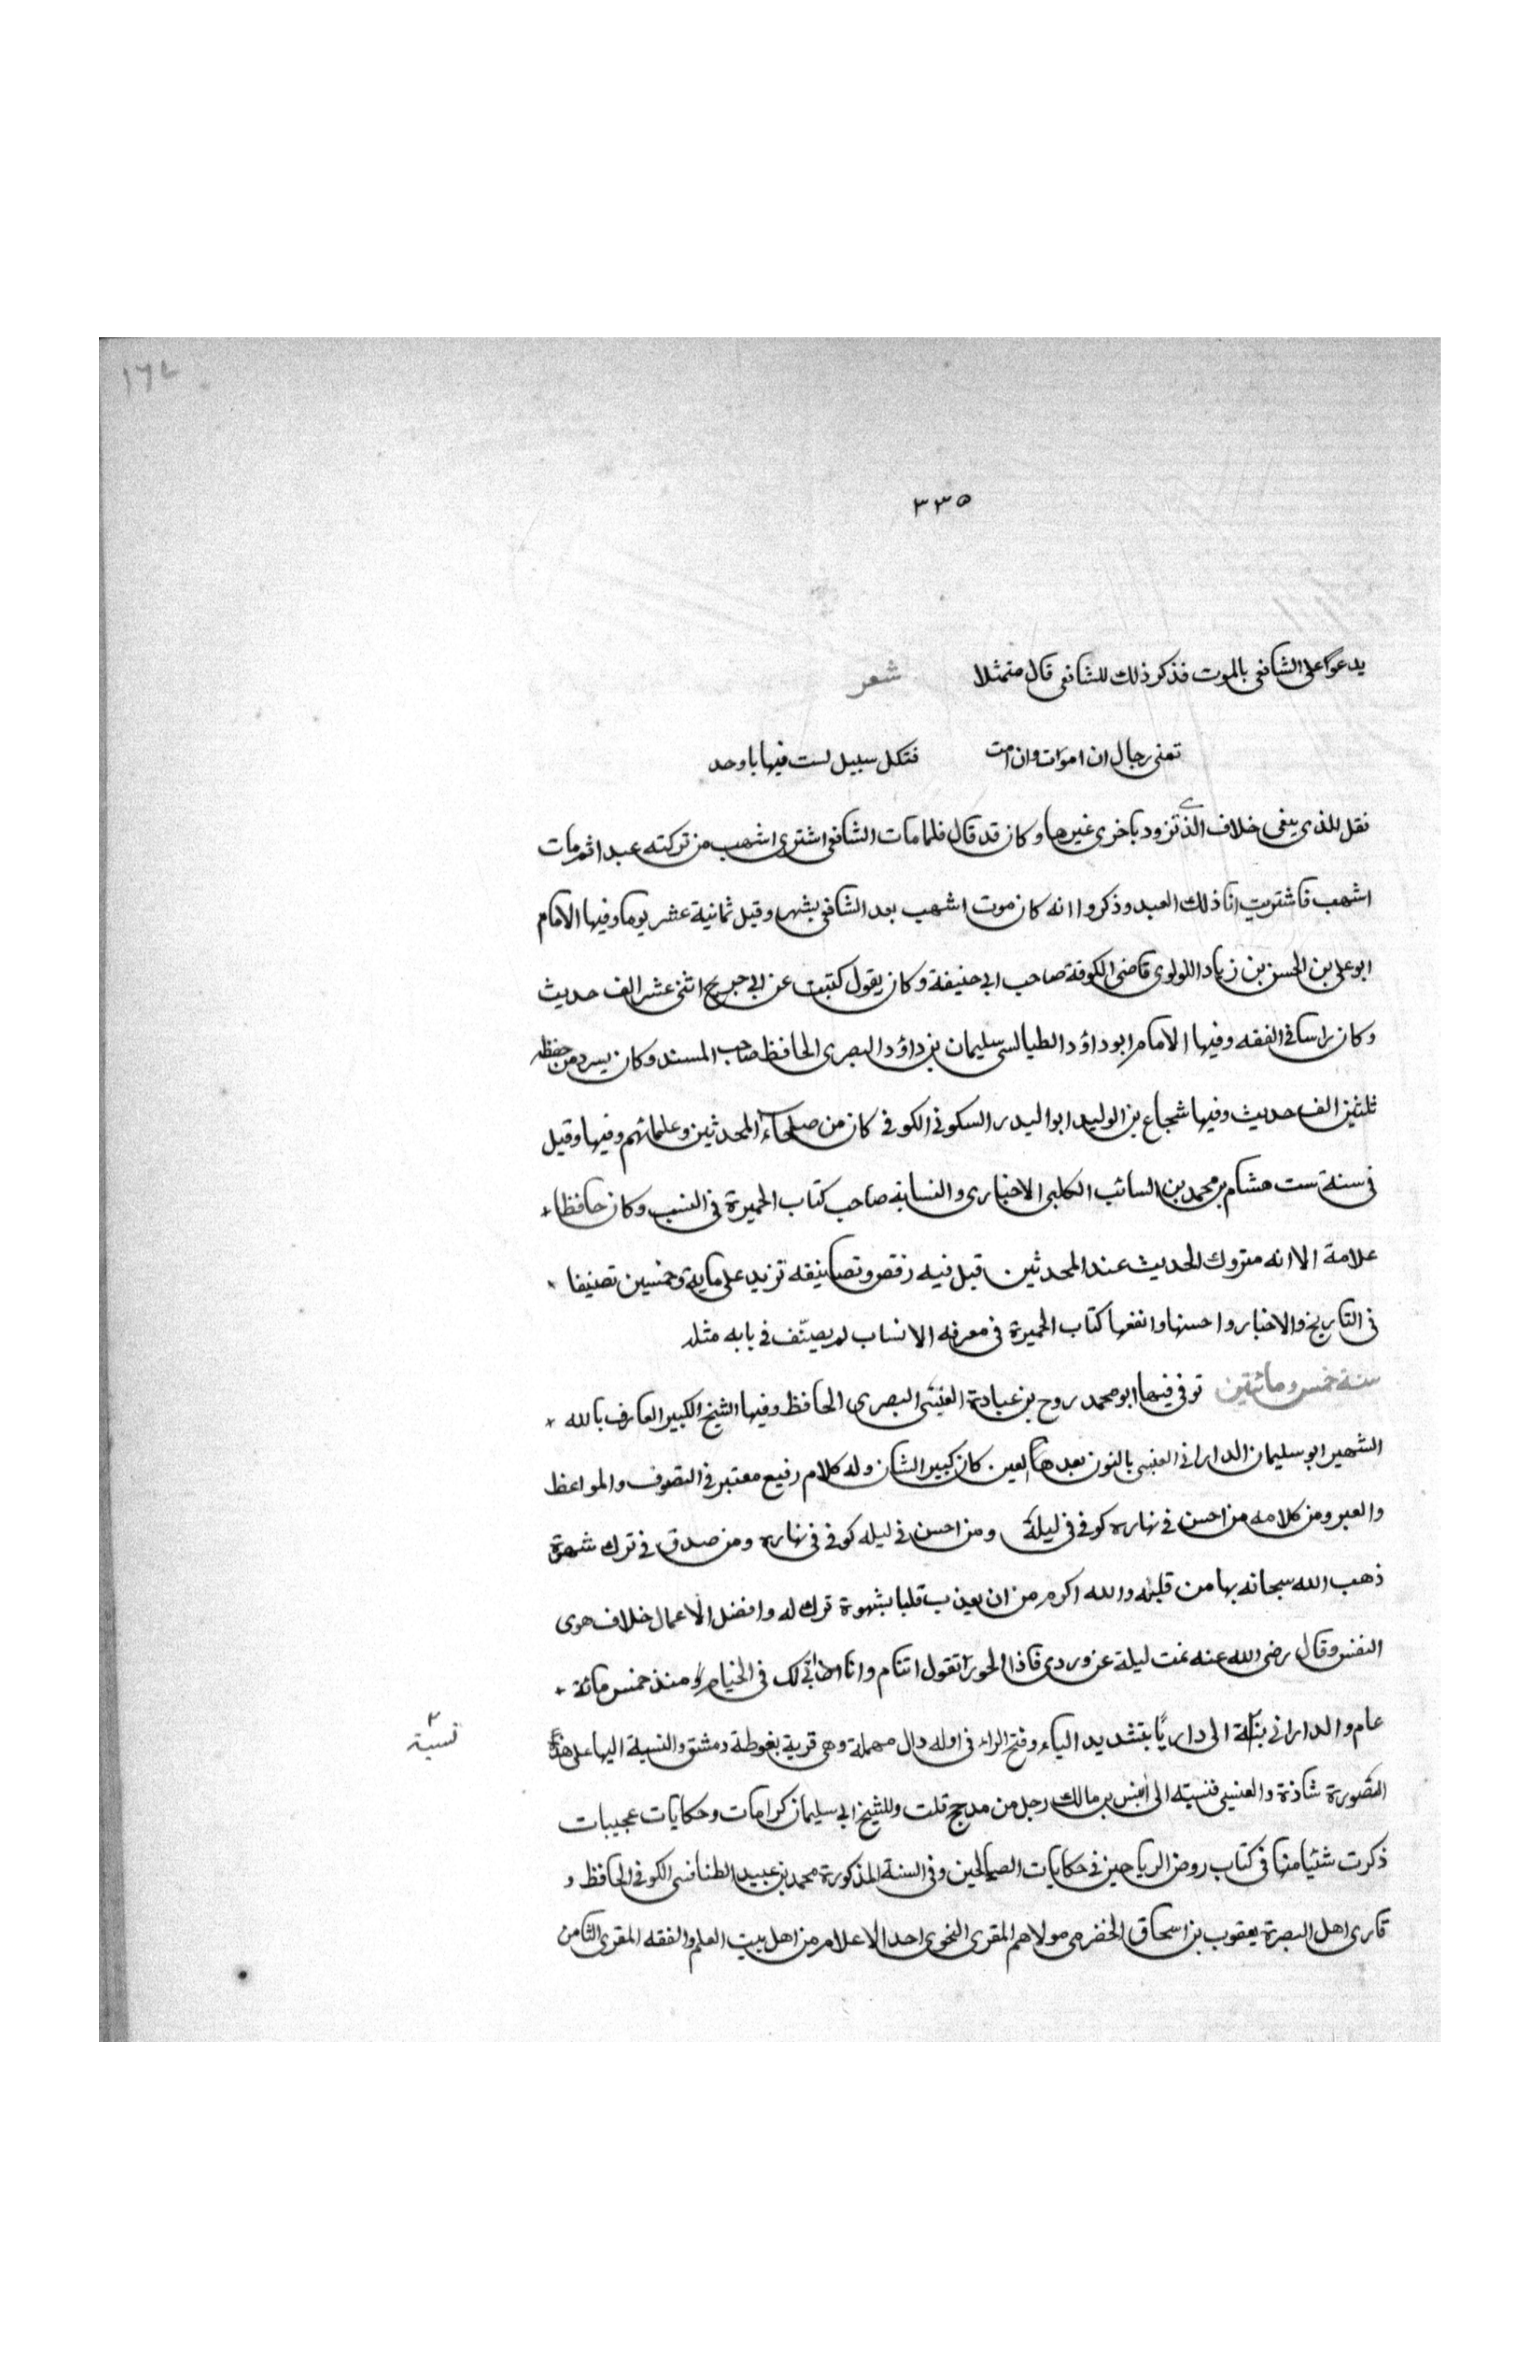 ١٦٧
٣٣٥
يدعوا على الشافعى بالموت فذكر ذلك للشافعى قال متمثلا شعر
تمنى رجال ان اموات وان امت فتكل سبيل لست فيها باوحد
نقل للذى يبغى خلاف الذى تزود باخرى غيرها وكان قد قال فلما مات الشافعى اشترى اشهب من تركته عبدا ثم مات
اشهب فاشتريت انا ذلك العبد وذكروا انه كان موت اشهب بعد الشافعى بشهر وقيل ثمانية عشر يوما وفيها الامام
ابو على بن الحسن بن زياد اللولوى قاضى الكوفة صاحب ابى حنيفة وكان يقول كتبت عن ابى جريح اثنى عشر الف حديث
وكان راسا فى الفقه وفيها الامام ابو داؤد الطيالسى سليمان بن داؤد البصرى الحافظ صاحب المسند وكان يسرد من حفظه
ثلثين الف حديث وفيها شجاع بن الوليد ابو البدر السكونى الكوفى كان من صلحاء المحدثين وعلمائهم وفيها وقيل
فى سنة ست هشام بن محمد بن السائب الكلبى الاخبارى والنسابه صاحب كتاب الجميرة فى النسب وكان حافظا
علامة الا انه متروك الحديث عند المحدثين قبل فيه رفض وتصانيفه تزيد على ماية وخمسين تصنيفا
فى التاريخ والاخبار واحسنها وانفعها كتاب الجميرة فى معرفه الانساب لم يصنّف فى بابه مثله
سنة خمس ومائتين توفى فيها ابو محمد روح بن عبادة القيسى البصرى الحافظ وفيها الشيخ الكبير العارف بالله
الشهير ابو سليمان الدارانى العنسى بالنون بعدها العين كان كبير الشان وله كلام رفيع معتبر فى التصوف والمواعظ
والعبر ومن كلامه من احسن فى نهاره كوفى فى ليلة ومن احسن فى ليله كوفى فى نهاره ومن صدق فى ترك شهوة
ذهب الله سبحانه بها من قلبه والله اكرم من ان يعذب قلبا بشهوة ترك له وافضل الاعمال خلاف هوى
النفس وقال رضى الله عنه نمت ليلة عن وردى فاذا الحورا تقول اتنام وانا لك فى الخيام منذ خمس مائة
عام والدارانى الى داريّا بتشديد الياء وفتح الراء فى اوله دال مهملة وهى قرية بغوطة دمشق والنسبة اليها على هذه
نسبة ٢
الصورة شاذة والعنسى فنسبته الى عنس بن مالك رجل من مدحج قلت وللشيخ ابى سليمان كرامات وحكايات عجيبات
ذكرت شئيا منها فى كتاب روض الرياحين فى حكايات الصالحين وفى السنة المذكورة محمد بن عبيد الطنافسى الكوفى الحافظ و
قارى اهل البصرة يعقوب بن اسحاق الحضرمى مولاهم المقرى النحوى احد الاعلام من اهل بيت العلم والفقه المقرى الثامن